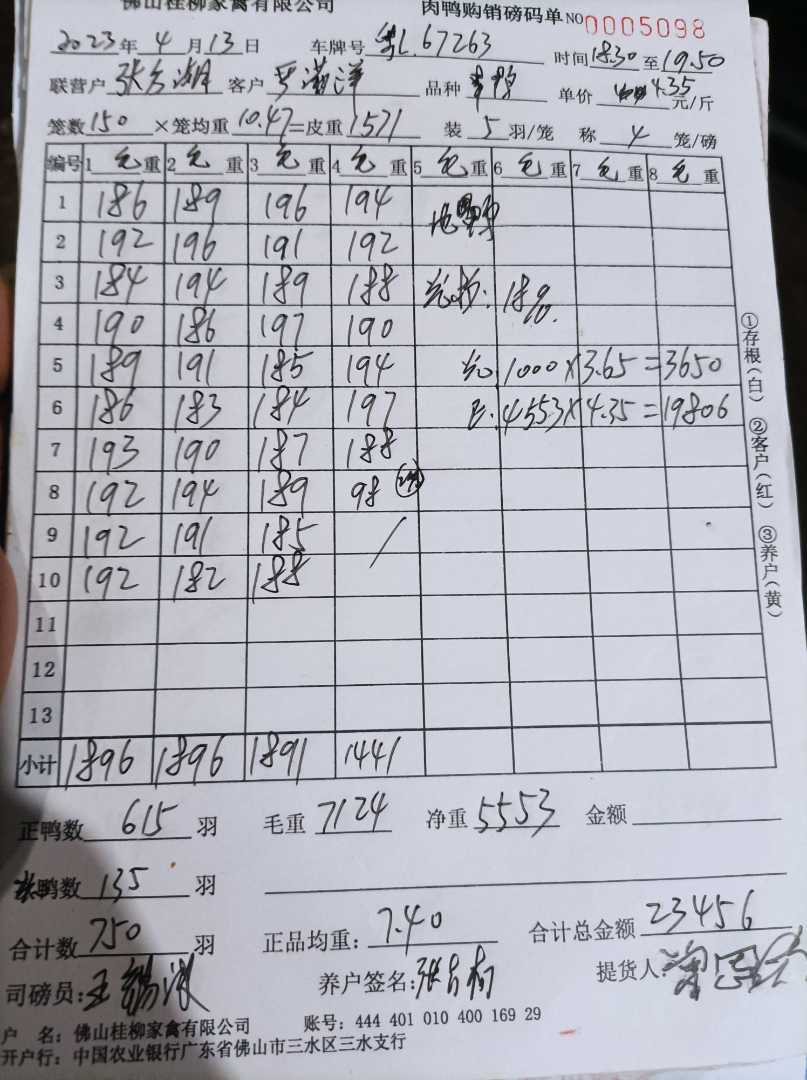 佛山桂柳家禽有限公司 肉鸭购销磅码单 NO 0005098
2023年4月13日 车牌号 L.67263 时间18.30至19.50
联营户 客户 品种 单价 4.35元/斤
笼数150×笼均重10.47=皮重1571 装5羽/笼 称4笼/磅
编号 1毛重 2毛重 3毛重 4毛重 5毛重 6毛重 7毛重 8毛重
1 186 189 196 194
2 192 196 191 192
3 184 194 189 188 18%.
4 190 186 197 190
5 189 191 185 194 1000×3.65=3650
6 186 183 184 197 正:4553×4.35=19806
7 193 190 187 188
8 192 194 189 98
9 192 191 185 /
10 192 182 188
11
12
13
小计 1896 1896 1891 1441
①存根(白) ②客户(红) ③养户(黄)
正鸭数615羽 毛重7124 净重5553 金额
鸭数135羽
合计数750羽 正品均重:7.40 合计总金额23456
司磅员: 养户签名: 提货人:
户 名:佛山桂柳家禽有限公司 账号:444 401 010 400 169 29
开户行:中国农业银行广东省佛山市三水区三水支行